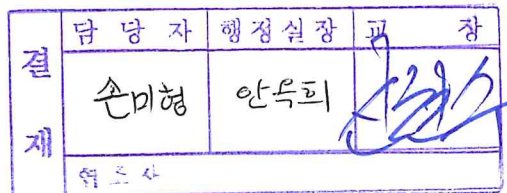 결재
담당자 행정실장 교장
손미형 안옥희
협조사